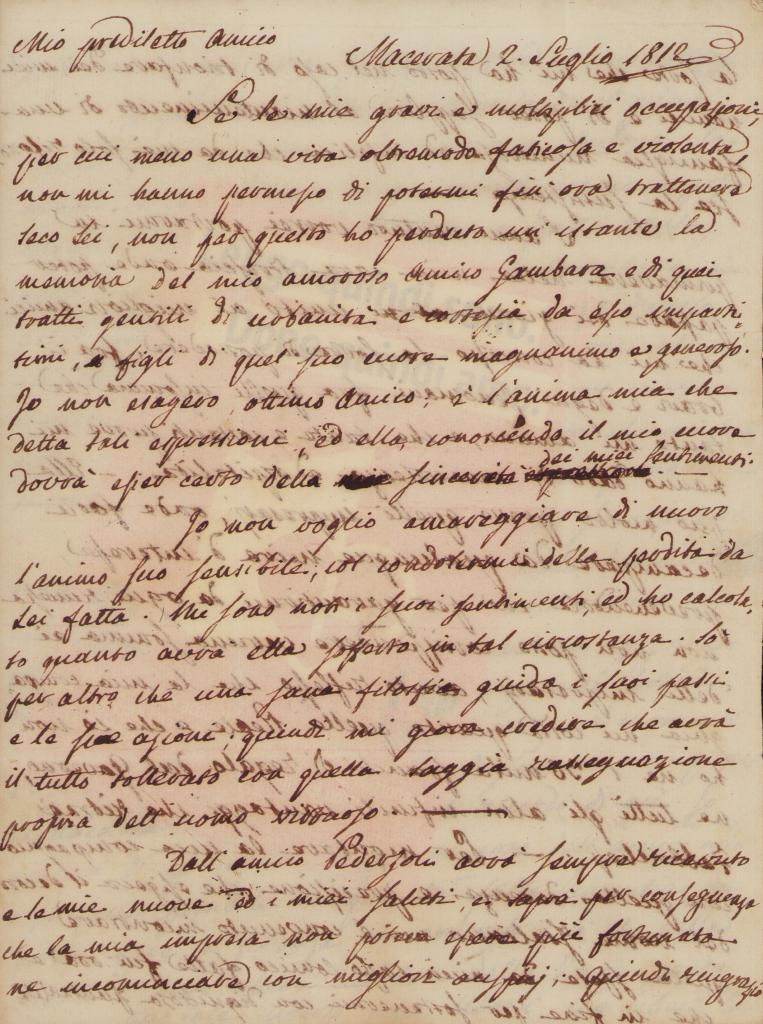 Mio prediletto Amico
Macerata 2. Luglio 1812
Se le mie gravi e moltiplici occupazioni,
per cui meno una vita oltremodo faticosa e violenta,
non mi hanno permesso di potermi fin' ora trattenere
seco Lei, non per questo ho perduto un' istante la
memoria del mio amoroso Amico Gambara e di quei
tratti gentili di urbanità e cortesia da esso imparti=
timi, e figli di quel suo cuore magnanimo e generoso.
Io non esagero, ottimo Amico, è l'anima mia che
detta tali espressioni, ed ella, conoscendo il mio cuore
dovrà esser certo della sincerità dei miei sentimenti.
Io non voglio amareggiare di nuovo
l'animo suo sensibile, col condolermi della perdita da
Lei fatta. Mi sono noti i suoi sentimenti, ed ho calcola=
to quanto avrà ella sofferto in tal circostanza. So
per altro che una sana filosofia guida i suoi passi
e le sue azioni; quindi mi giova credere che avrà
il tutto tollerato con quella saggia rassegnazione
propria dell' uomo virtuoso
Dall' amico Pedersoli avrà sempre ricevuto
e le mie nuove ed i miei saluti, e saprà per conseguenza
che la mia impresa non poteva essere più fortunata
ne incominciare con migliori auspicj; quindi ringrazio